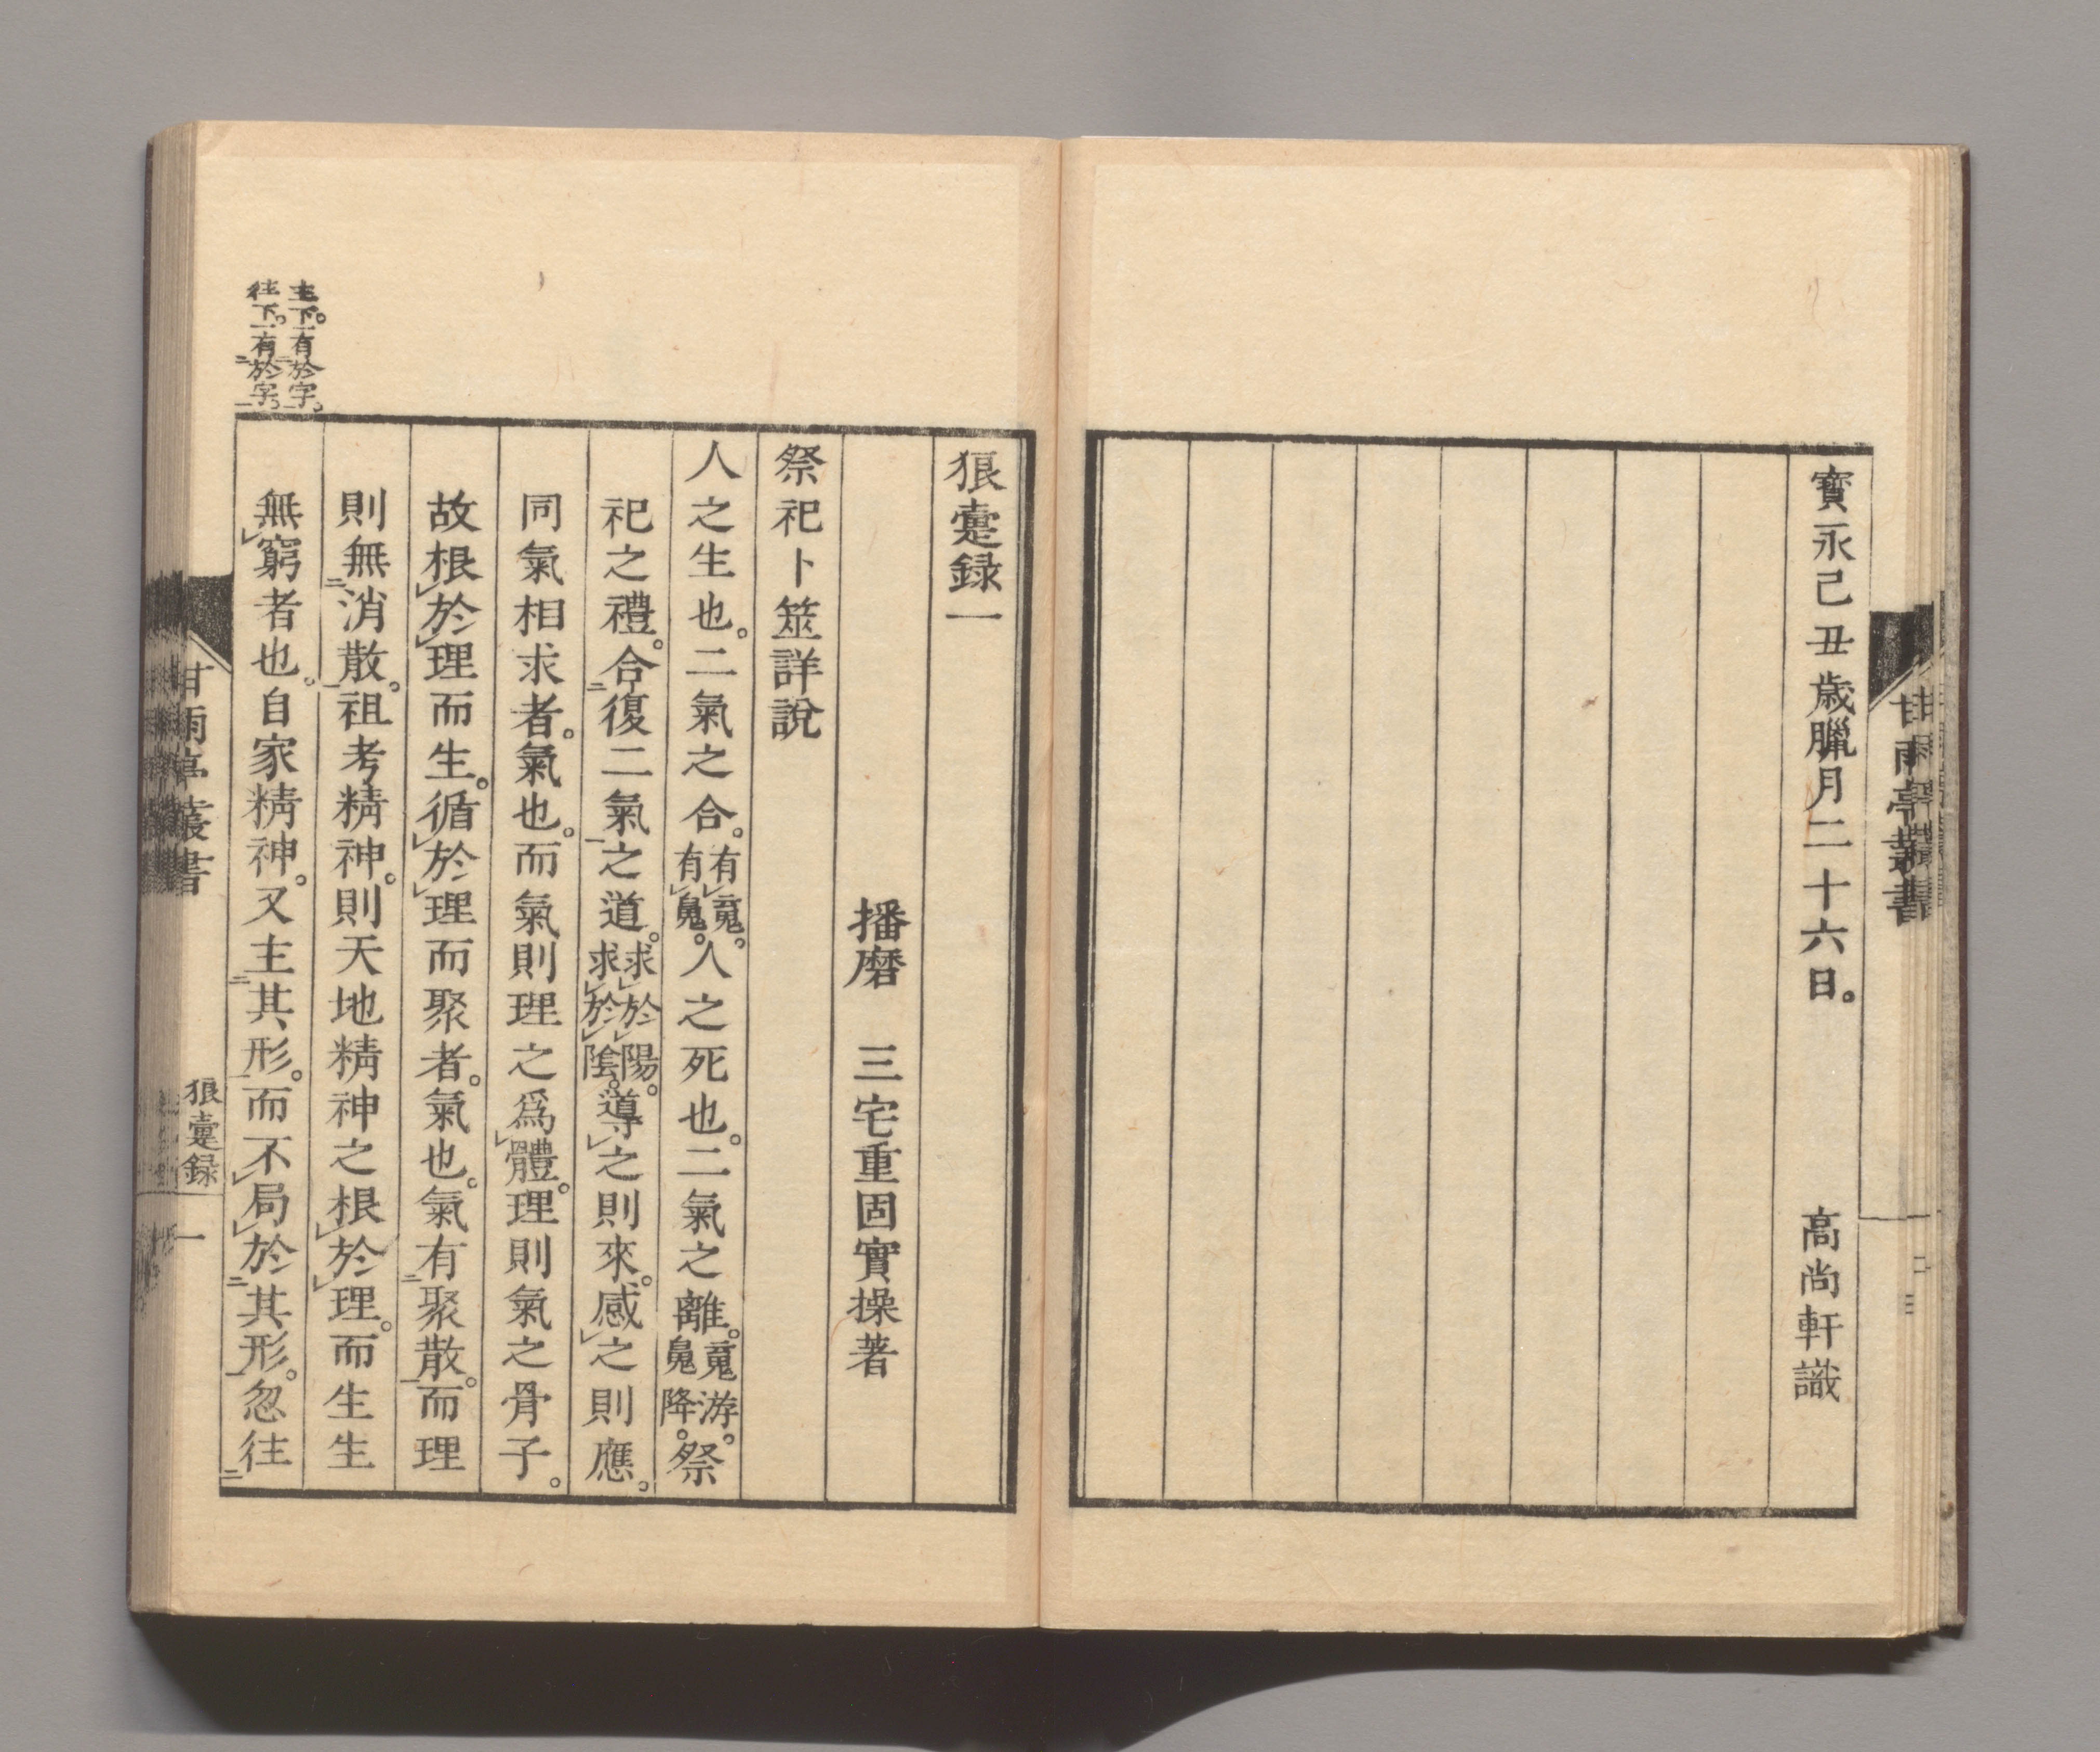 寶永己丑歳臘月二十六日。　高尚軒識
甘雨亭叢書
狼疐録一
播磨　三宅重固實操著
祭祀卜筮詳說
人之生也。二氣之合。有魂。有魄。人之死也。二氣之離。魂游。魄降。祭
祀之禮。合復二氣之道。求於陽。求於陰。導之則來。感之則應。
同氣相求者。氣也。而氣則理之爲體。理則氣之骨子。
故根於理而生。循於理而聚者。氣也。氣有聚散。而理
則無消散。祖考精神。則天地精神之根於理。而生生
無窮者也。自家精神。又主其形。而不局於其形。忽往
主下。一有於字。
往下。一有於字。
甘雨亭叢書
狼疐録
一